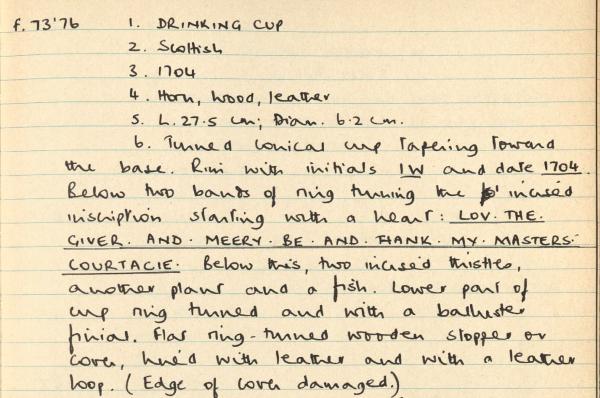 f. 73'76 1. DRINKING CUP
2. Scottish
3. 1704
4. Horn, wood, leather
5. L. 27.5 cm; Diam. 6.2 cm.
6. Turned conical cup tapering toward
the base. Rim with initials IW and date 1704.
Below two bands of ring turning the incised
inscription starting with a heart: LOV. THE.
GIVER. AND. MEERY. BE. AND. THANK. MY. MASTERS.
COURTACIE. Below this, two incised thistles,
another plant and a fish. Lower part of
cup ring turned and with a balluster
finial. Flat ring-turned wooden stopper or
cover, lined with leather and with a leather
loop. (Edge of cover damaged.)